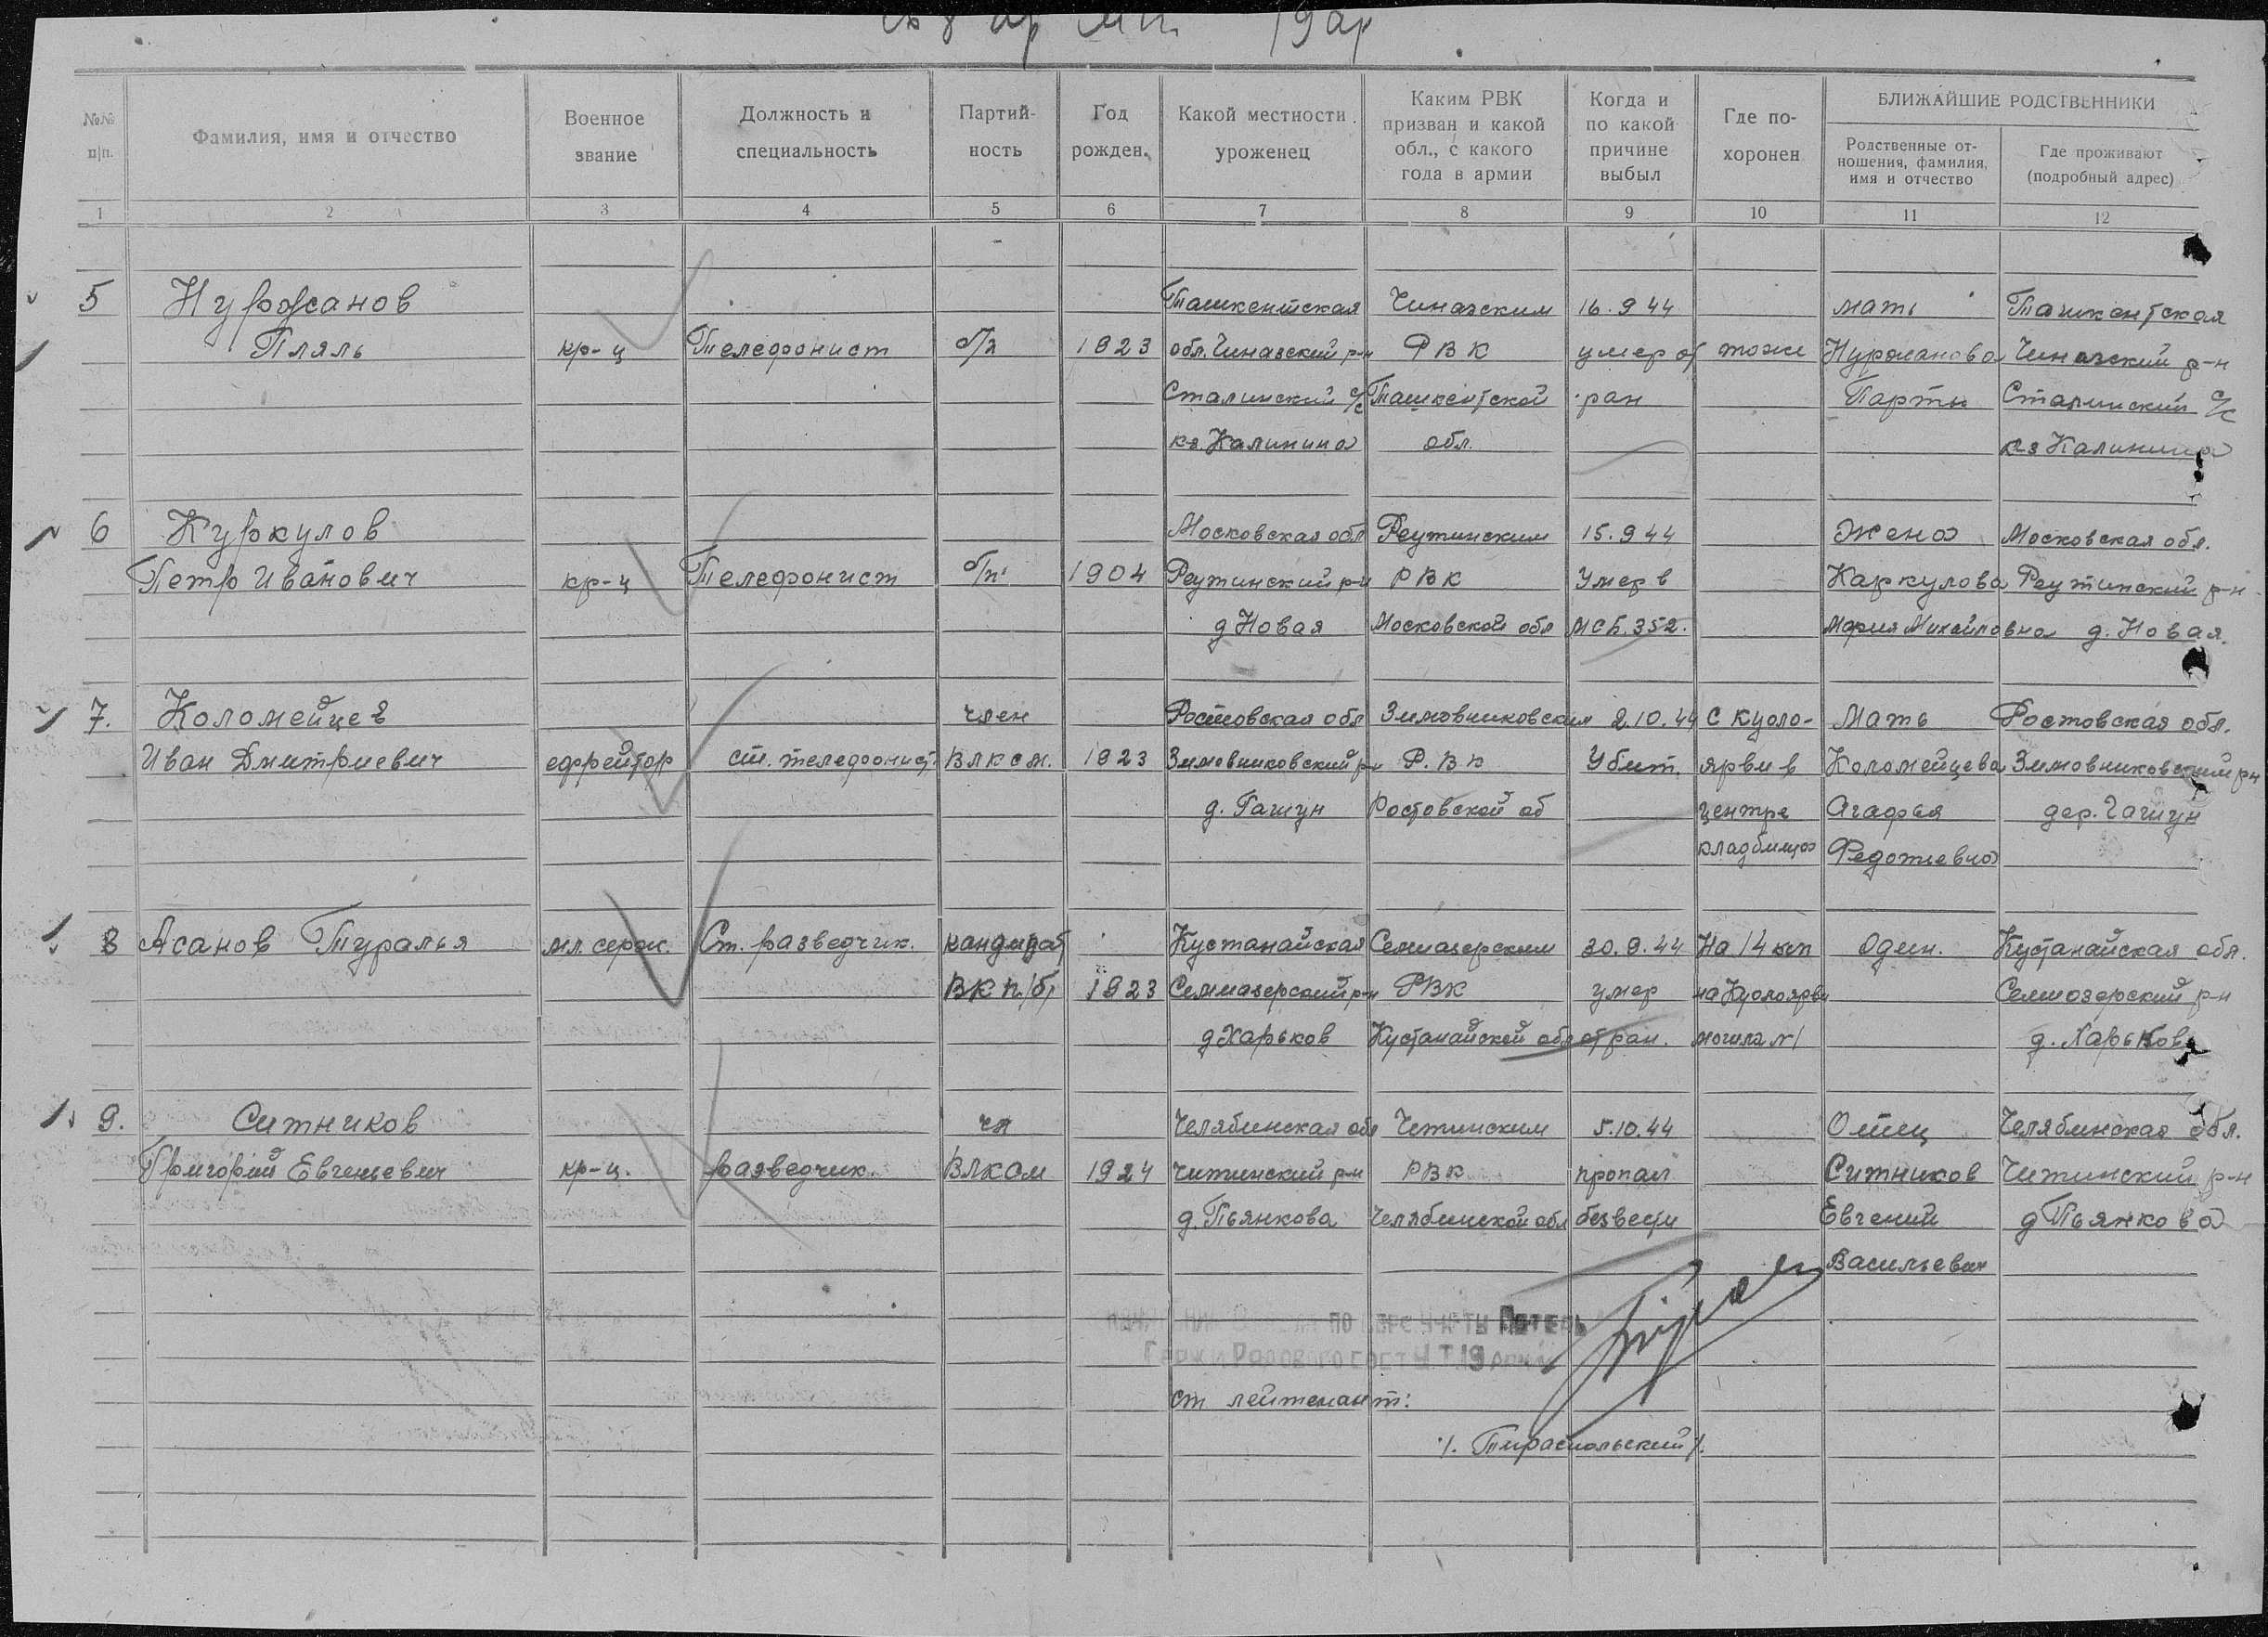 19 ар
№№ п/п.
Фамилия, имя и отчество
Военное звание
Должность и специальность
Партийность
Год рожден.
Какой местности уроженец
Каким РВК призван и какой обл., с какого года в армии
Когда и по какой причине выбыл
Где похоронен
БЛИЖАЙШИЕ РОДСТВЕННИКИ
Родственные отношения, фамилия, имя и отчество
Где проживают (подробный адрес)
1 2 3 4 5 6 7 8 9 10 11 12
5 Нуржанов Ташкентская Чиназским 16.9 44 мать Ташкентская
Пляль кр-ц Телефонист б/п 1923 обл. Чиназский р-н РВК умер от тоже Нуржанова Чиназский р-н
Сталинский с/с Ташкентской ран Парты Сталинский с/с
кз. Калинина обл. кз Калинина
6 Куркулов Московская обл Реутинским 15.9 44 жена Московская обл.
Петр Иванович кр-ц Телефонист б/п 1904 Реутинский р-н РВК Умер в Каркулова Реутинский р-н
д Новая Московской обл МСБ.352. Мария Михайловна д. Новая.
7. Коломейцев член Ростовская обл Зимовниковским 2.10.44 с Куоло- Мать Ростовская обл.
Иван Дмитриевич ефрейтор ст. телефонист. ВЛКСМ. 1923 Зимовниковский р-н Р.ВК Убит. ярви в Коломейцева Зимовниковским р-н
д. Гашун Ростовской об центре Агафья дер. Гашун
кладбища Федотьевна
8 Асанов Туралья мл. серж. Ст. разведчик. кандидат Кустанайская Семиазерским 30.9.44 На 14 км Один. Кустанайская обл.
ВКП/б/ 1923 Семиазерский р-н РВК умер на Куолоярви Семиозерский р-н
д Харьков Кустанайской обл от ран. могила №1 д. Харьков
9. Ситников чл Челябинская обл Четинским 5.10.44 Отец Челябинская обл.
Григорий Евгеньевич кр-ц. разведчик. ВЛКСМ 1924 Читинский р-н РВК пропал Ситников Читинский р-н
д. Пьянкова Челябинской обл безвести Евгений д Пьянкова
Васильевич
ст лейтенант:
/. Тираспольский /.